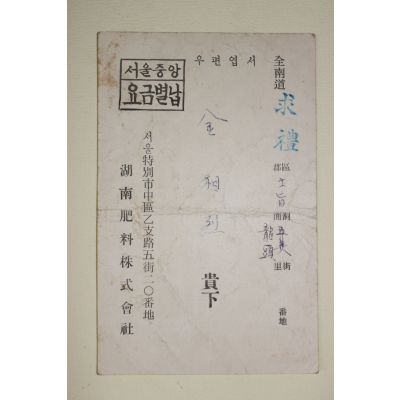 우편엽서
서울중앙
요금별납
全南道
求禮
郡區
土旨
面洞
龍頭
里街
番地
金
貴下
서울特別市中區乙支路五街二〇番地
湖南肥料株式會社